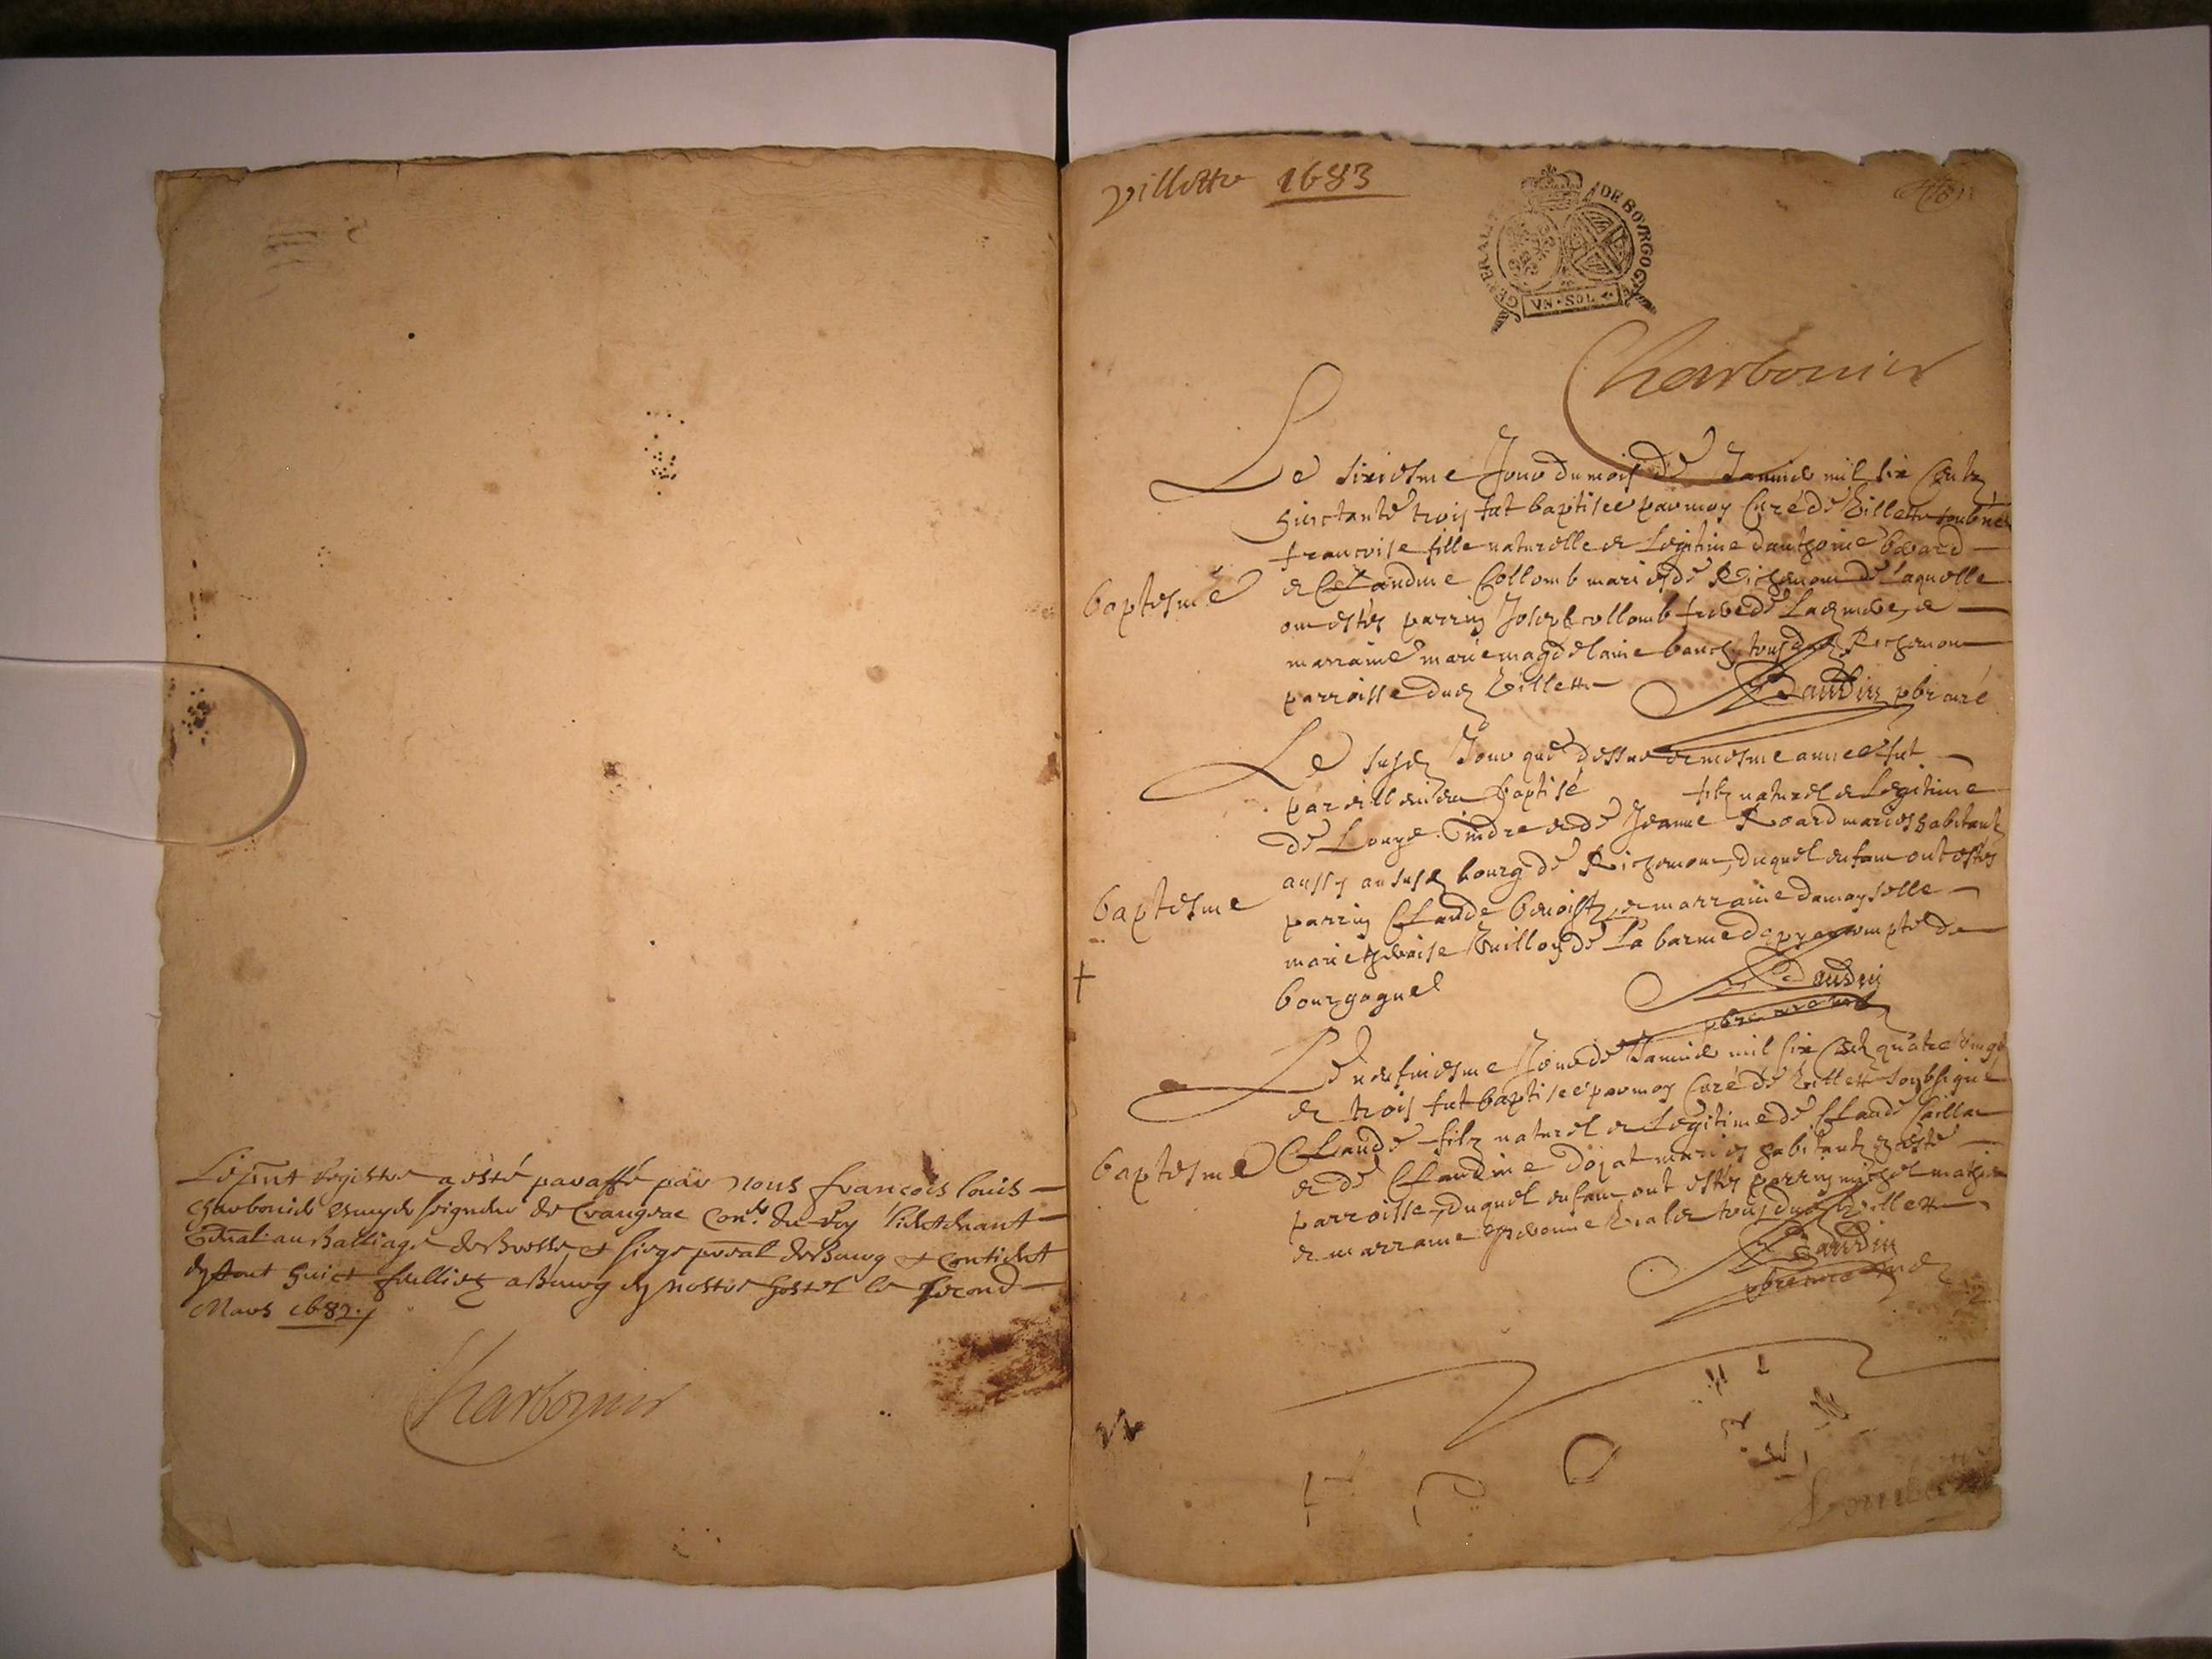 Le pnt registre a esté paraffé par nous francois louis
Charbonier escuyer seigneur de Crangeac Con.er du Roy lieutenant
gnral au Balliage de Bresse et siege pnral de Bourg et contient
huict feulliez a Bourg en nostre hostel le second
Mars 1682./
Charbonier
Villette 1683
GENERALITE DE BOVRGOGNE
VN · SOL
Charbonier
Le sixiesme Jour du mois de Januier mil six Centz
huictante trois fut baptisee par moy Curé de Villette soubné
francoise fille naturelle et Legitime danthoine beuard
baptesme
et Claudine Collomb maries de Richemont de laquelle
ont estés parrin Joseph collomb frere de Lad mere, et
marraine marie magdelaine tous dud Richemont
parroisse dud Villette Baudin pbre curé
Le susd Jour que dessus et mesme annee fut
pareillement baptisé filz naturel et Legitime
de Louys et de Jeanne Roard maries habitantz
aussy au susd bourg de Richemont, duquel enfant ont estés
baptesme
parrin Claude benoist, et marraine damoyselle
marie de la barme
bourgogne
Baudin
pbre curé
Le neufuiesme Jour de Januier mil six Centz quatre vingt
et trois fut baptisé par moy Curé de Villette soubsigné
Claude filz naturel et Legitime de Claude
baptesme
et de Claudine maries habitantz
parroisse, duquel enfant ont estés parrin michel
et marraine tous dud Villette
Baudin
pbre curé